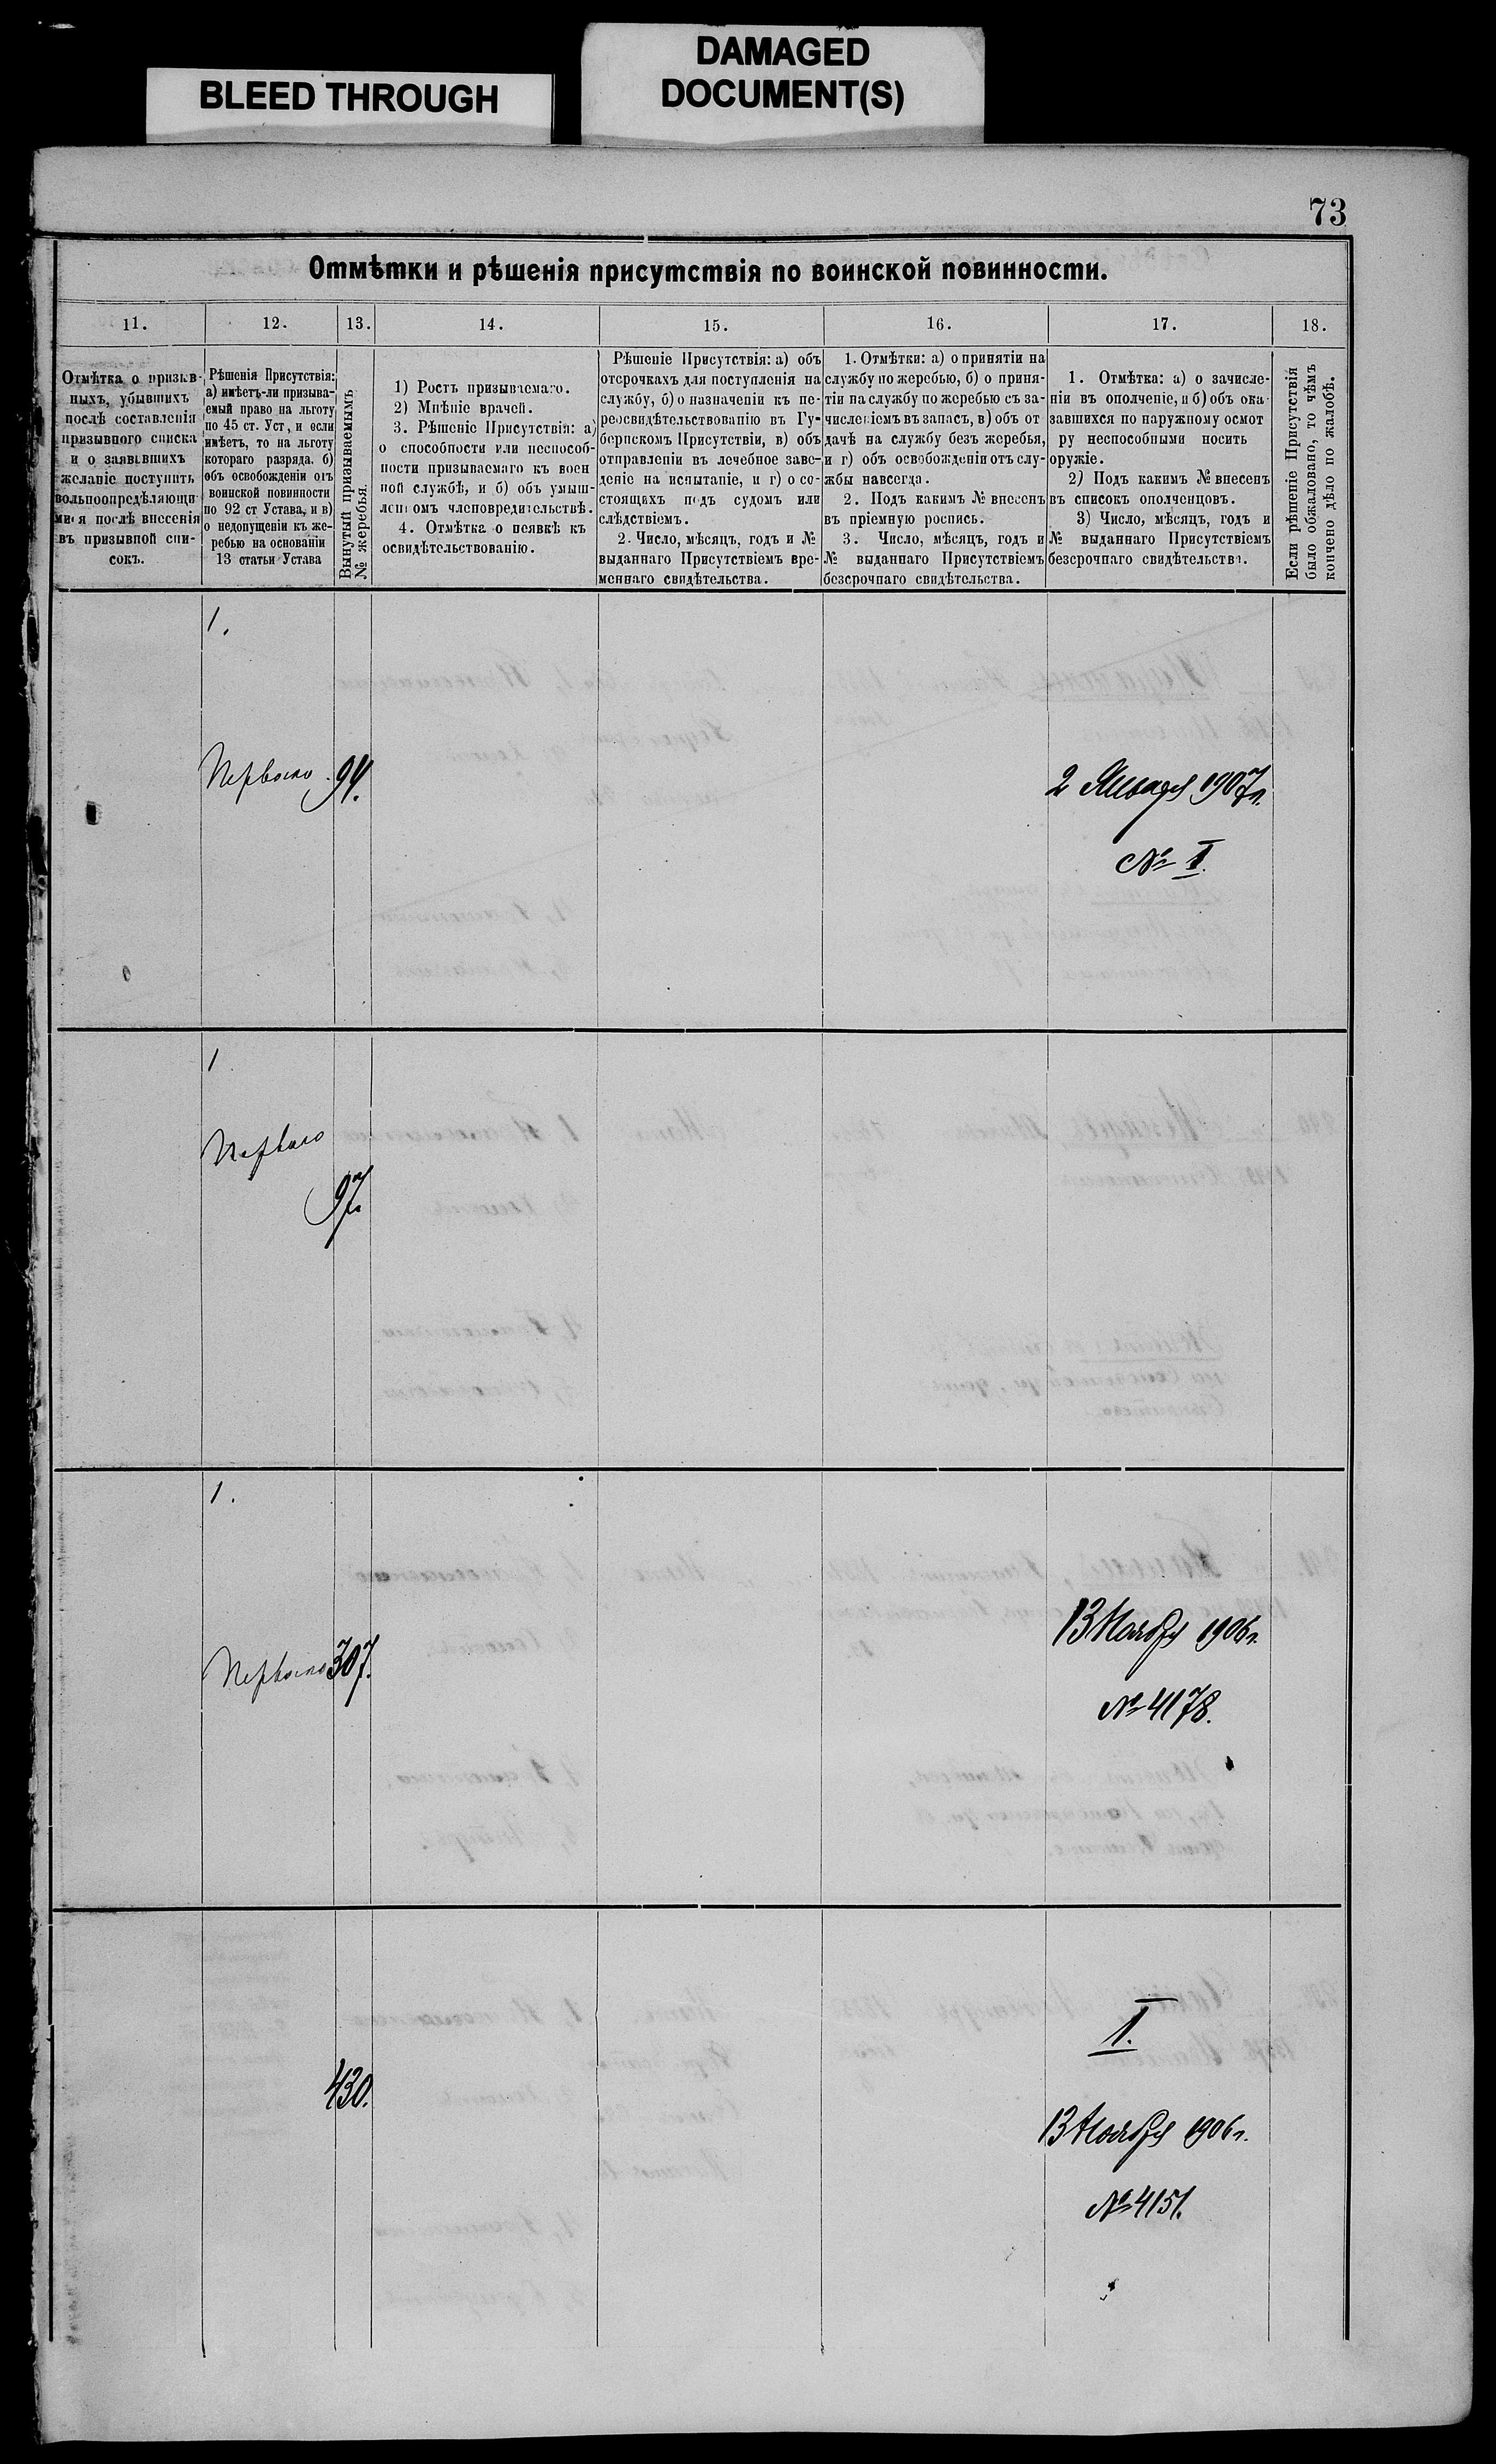 BLEED THROUGH
DAMAGED
DOCUMENT(S)
73
Отмѣтки и рѣшенія присутствія по воинской повинности.
11.
12.
13.
14.
15.
16.
17.
18.
Отмѣтка о призыв-
ныхъ, убывшихъ
послѣ составленія
призывного списка
и о заявившихъ
желаніе поступить
вольноопредѣляющи
мися послѣ внесенія
въ призывной спи-
сокъ.
Рѣшенія Присутствія:
а) имѣетъ-ли призыва-
емый право на льготу
по 45 ст. Уст, и если
имѣетъ, то на льготу
котораго разряда. б)
объ освобожденіи отъ
воинской повинности
по 92 ст Устава, и в)
о недопущеніи къ же-
ребью на основаніи
13 статьи Устава
Вынутый призываемымъ
№ жеребья.
1) Ростъ призываемаго.
2) Мнѣніе врачей.
3. Рѣшеніе Присутствія: а)
о способности или неспособ-
ности призываемаго къ воен
ной службѣ, и б) объ умыш-
леномъ членовредительствѣ.
4. Отмѣтка о неявкѣ къ
освидѣтельствованію.
Рѣшеніе Присутствія: а) объ
отсрочкахъ для поступленія на
службу, б) о назначеніи къ пе-
реосвидѣтельствованію въ Гу-
бернскомъ Присутствіи, в) объ
отправленіи въ лечебное заве-
деніе на испытаніе, и г) о со-
стоящахъ подъ судомъ или
слѣдствіемъ.
2. Число, мѣсяцъ, годъ и №
выданнаго Присутствіемъ вре-
меннаго свидѣтельства.
1. Отмѣтки: а) о принятіи на
службу по жеребью, б) о приня-
тіи на службу по жеребью съ за-
численіемъ въ запасъ, в) объ от
дачѣ на службу безъ жеребья,
и г) объ освобожденіи отъ слу-
жбы навсегда.
2. Подъ какимъ № внесенъ
въ пріемную роспись.
3. Число, мѣсяцъ, годъ и
№ выданнаго Присутствіемъ
безсрочнаго свидѣтельства.
1. Отмѣтка: а) о зачисле-
ніи въ ополченіе, и б) объ ока-
завшихся по наружному осмот
ру неспособными носить
оружіе.
2) Подъ какимъ № внесенъ
въ списокъ ополченцовъ.
3) Число, мѣсяцъ, годъ и
№ выданнаго Присутствіемъ
безсрочнаго свидѣтельства.
Если рѣшеніе Присутствія
было обжаловано, то чѣмъ
кончено дѣло по жалобѣ.
1.
Перваго 94.
2 Января 1907 г.
№ I.
1
Перваго
97.
1.
Перваго 307.
13 Ноября 1906 г.
№ 4178.
430.
I.
13 Ноября 1906 г.
№ 4151.